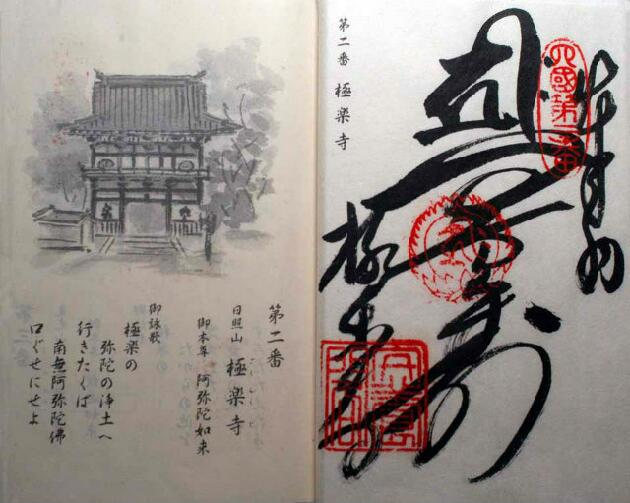 四國第二番
極楽寺
第二番 極楽寺
第二番
日照山 極楽寺
御本尊 阿弥陀如来
御詠歌
極楽の
弥陀の浄土へ
行きたくば
南無阿弥陀佛
口ぐせにせよ